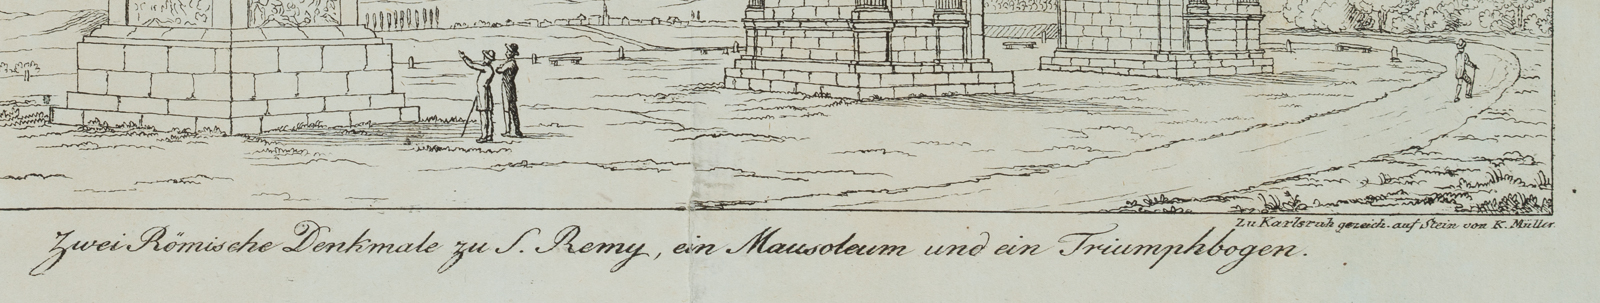 Zu Karlsruh gezeich. auf Stein von K. Müller.
Zwei Römische Denkmale zu S. Remy, ein Mausoleum und ein Triumphbogen.